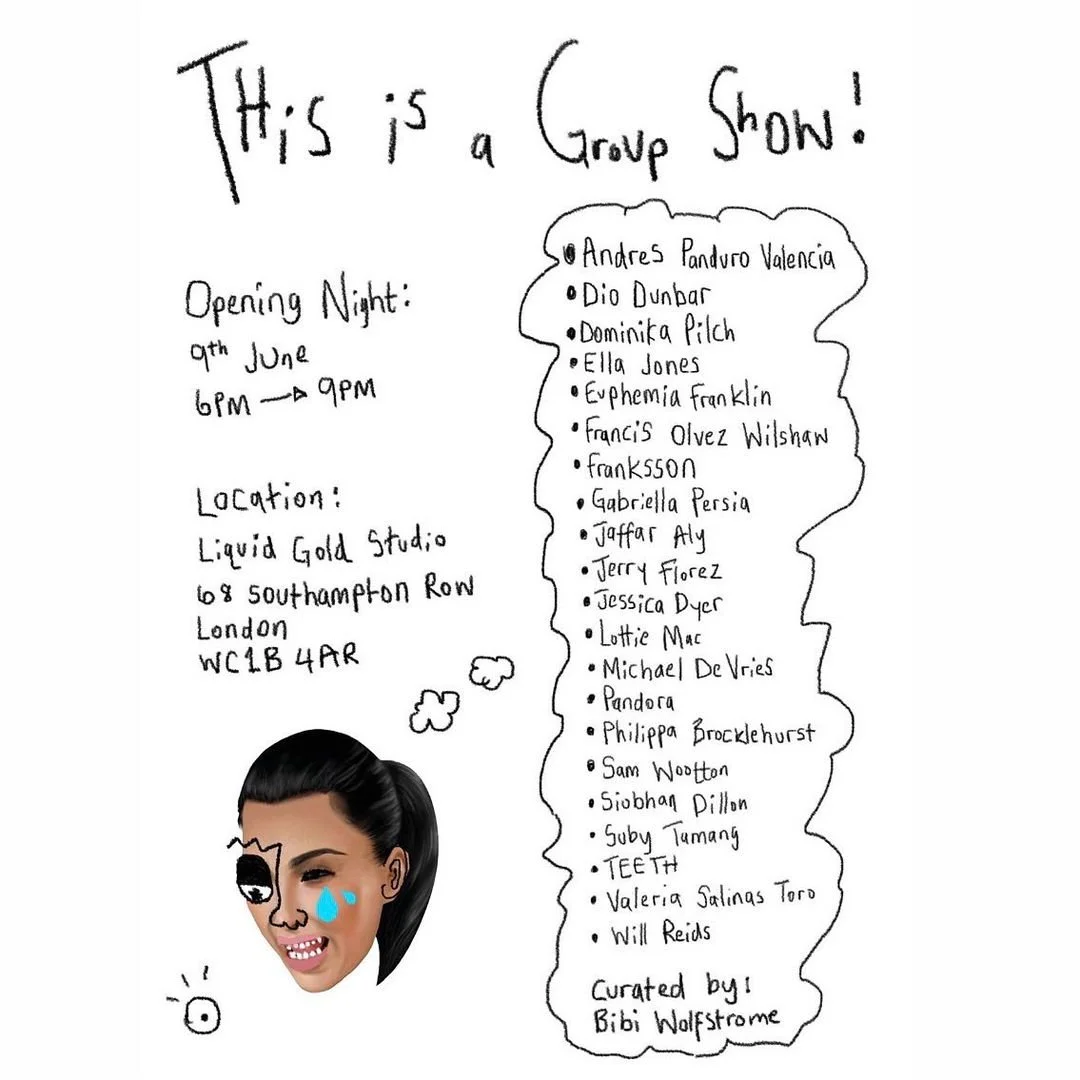 THis is a Group Show!
Opening Night:
9th June
6PM → 9PM
Location:
Liquid Gold Studio
68 Southampton Row
London
WC1B 4AR
• Andres Panduro Valencia
• Dio Dunbar
• Dominika Pilch
• Ella Jones
• Euphemia Franklin
• Francis Olvez Wilshaw
• Franksson
• Gabriella Persia
• Jaffar Aly
• Jerry Florez
• Jessica Dyer
• Lottie Mac
• Michael De Vries
• Pandora
• Philippa Brocklehurst
• Sam Wootton
• Siobhan Dillon
• Suby Tamang
• TEETH
• Valeria Salinas Toro
• Will Reids
Curated by:
Bibi Wolfstrome